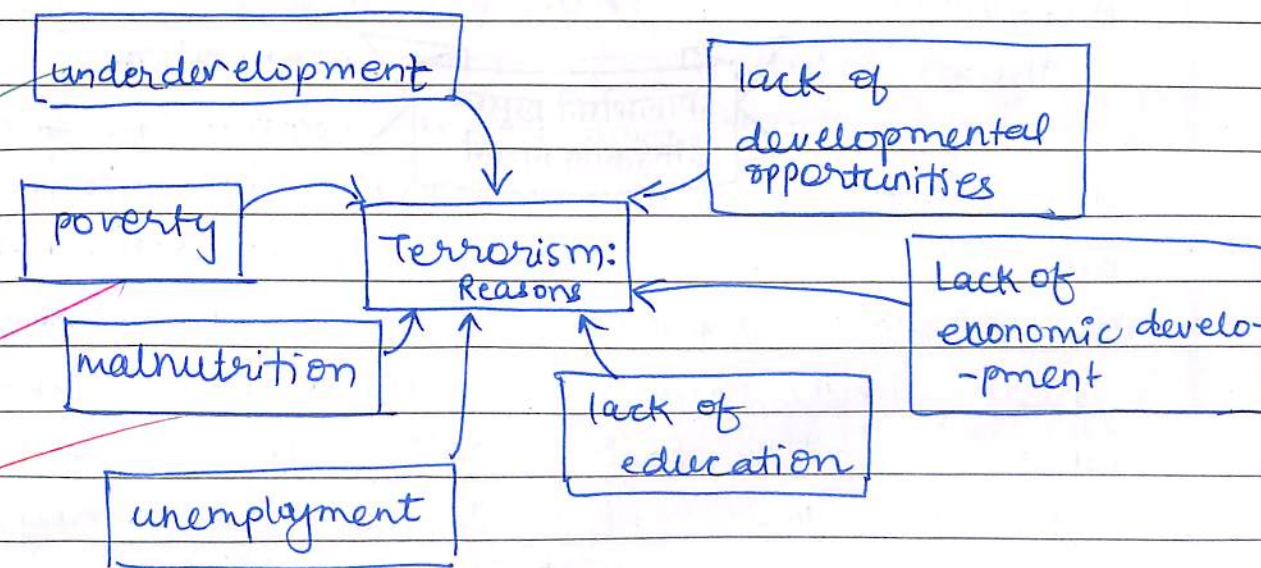 underdevelopment
lack of
developmental
opportunities
poverty
Terrorism:
Reasons
Lack of
economic develo-
-pment
malnutrition
lack of
education
unemployment